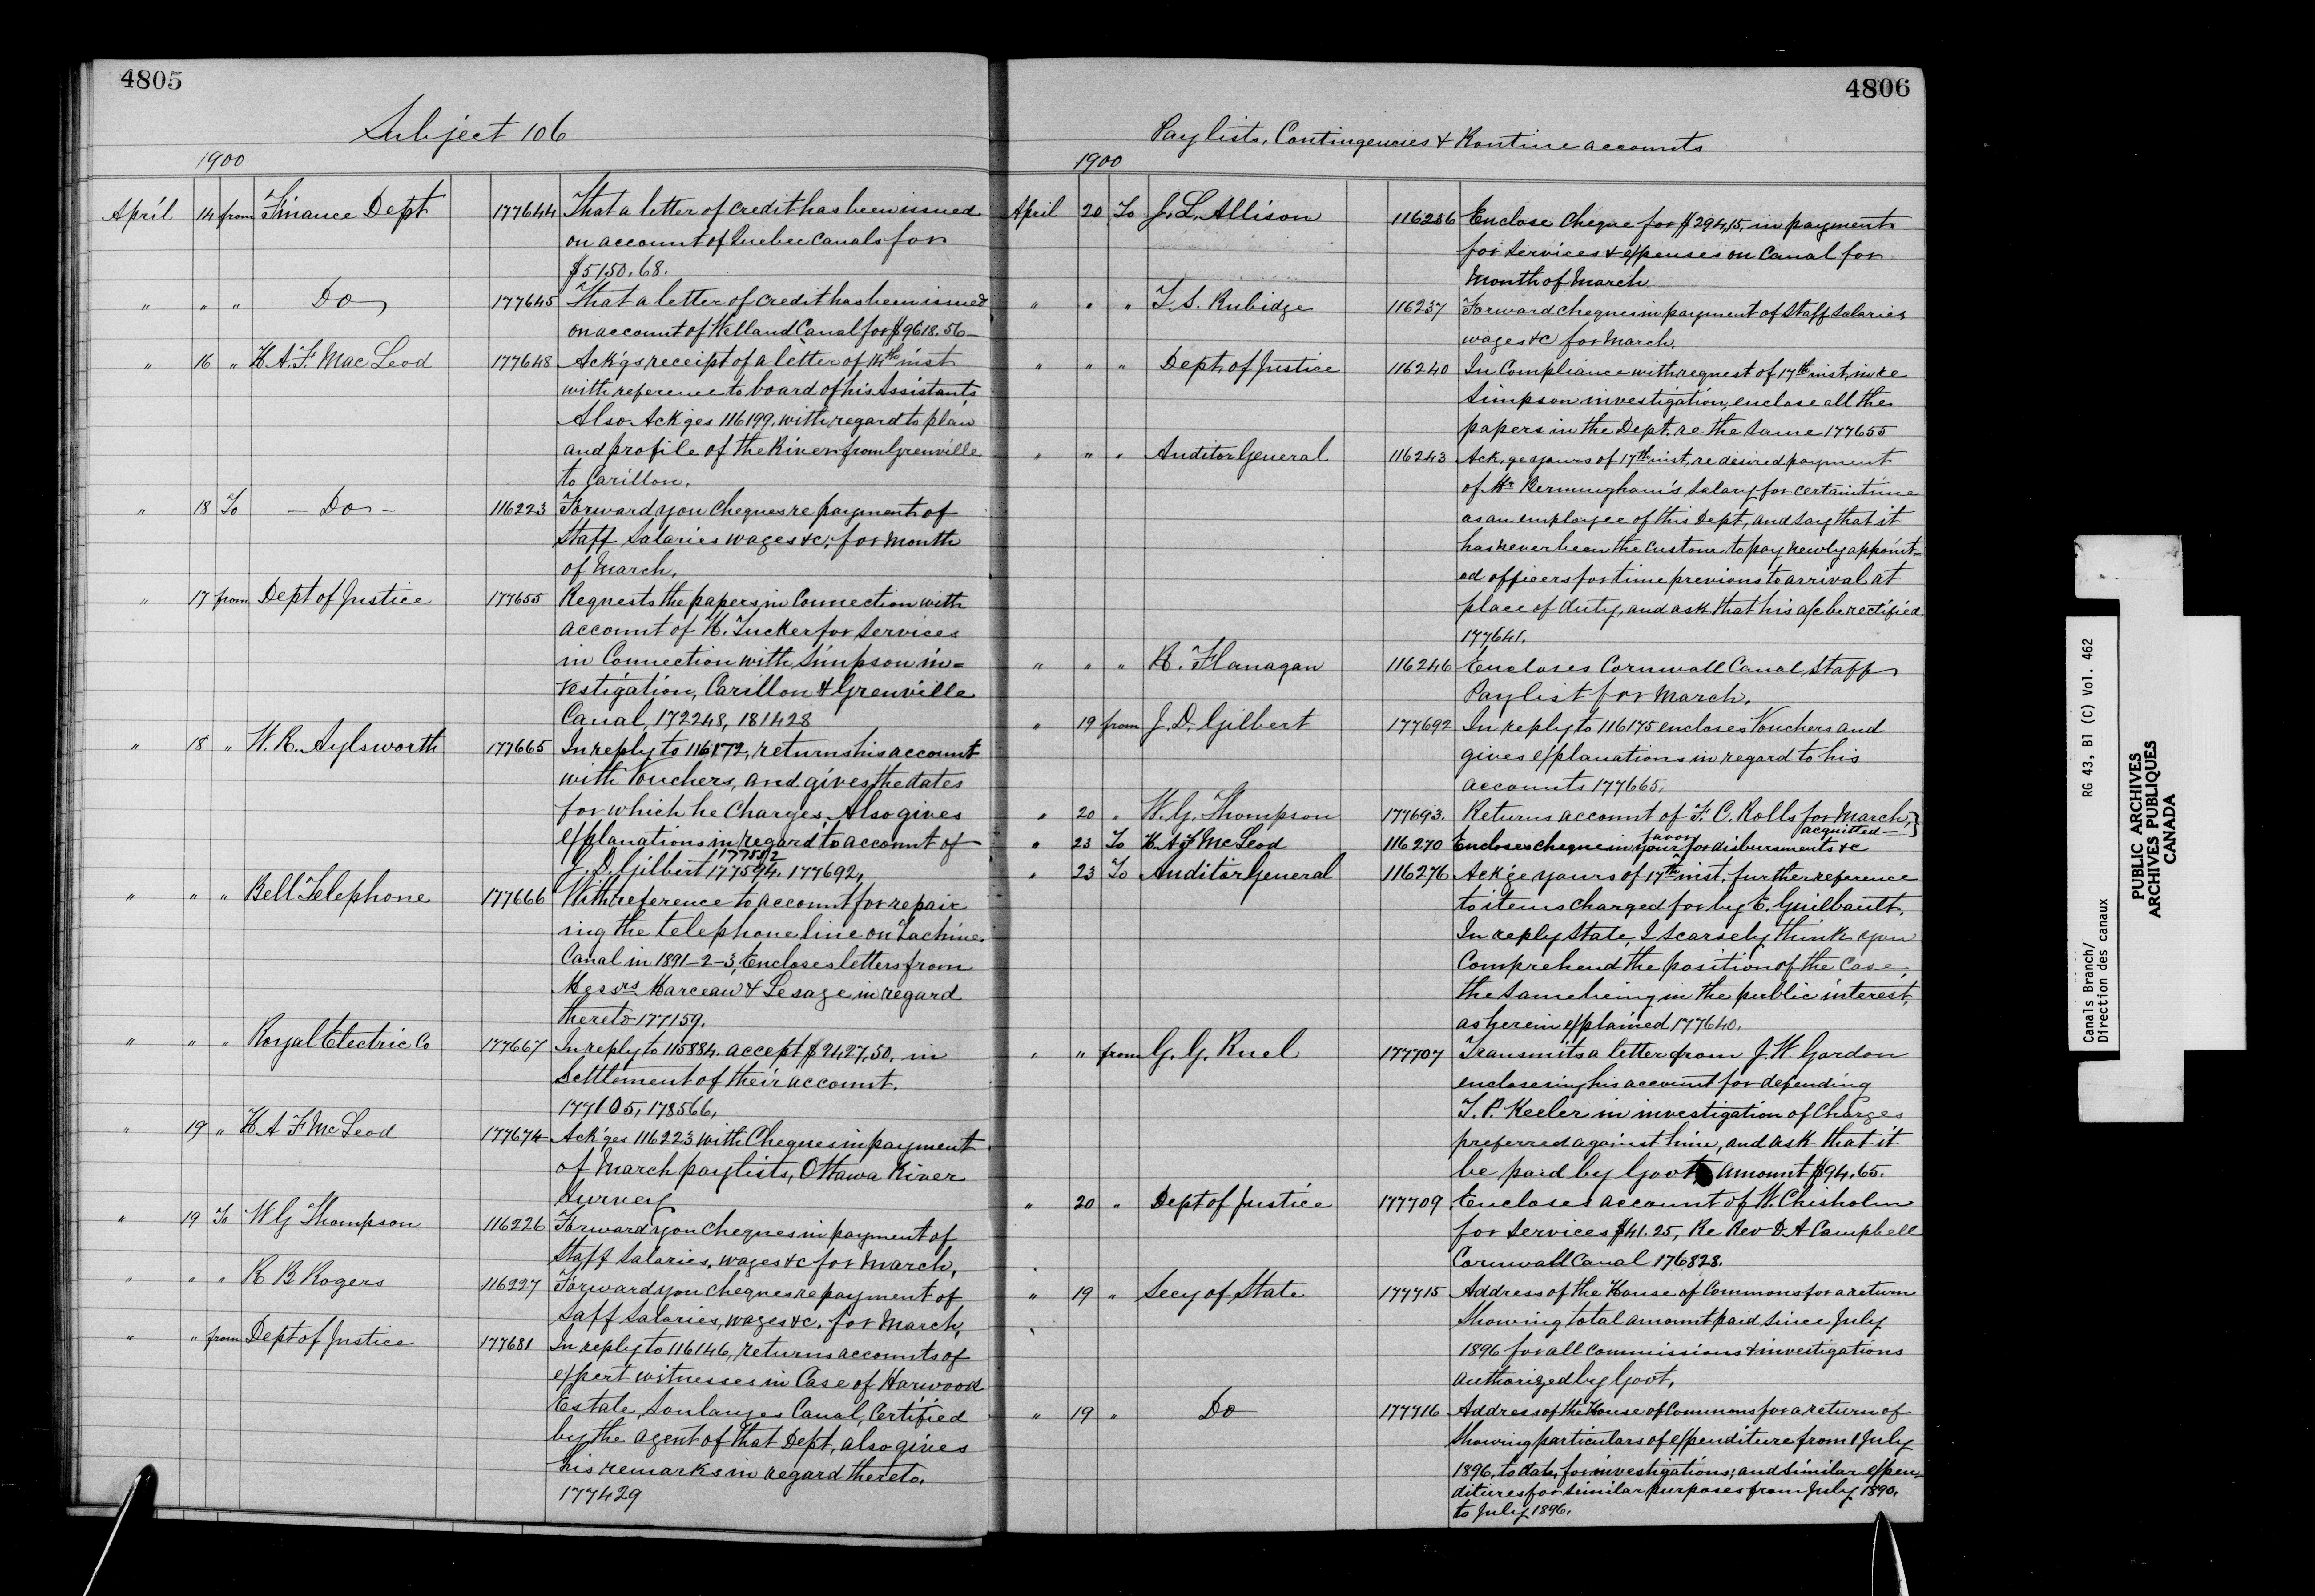 4805
Subject 106
1900
April 14 from Finance Dept 177644 That a letter of credit has been issued
on account of Quebec Canals for
$5150.68.
" " " Do 177645 That a letter of credit has been issued
on account of Welland Canal for $9618.56—
" 16 " H. A. F. MacLeod 177648 Ack'gs receipt of a letter of 14th inst
with reference to board of his Assistants
Also Ack'ges 116199. with regard to plan
and profile of the River from Grenville
to Carillon.
" 18 To — Do — 116223 Forward you Cheques re payment of
Staff Salaries wages &c; for month
of March.
" 17 from Dept of Justice 177655 Requests the papers in Connection with
account of H. Tucker for services
in Connection with Simpson in=
vestigation, Carillon & Grenville
Canal, 172248, 181428
" 18 " W. R. Aylsworth 177665 In reply to 116172, returns his account
with Vouchers, and gives the dates
for which he Charges. Also gives
explanations in regard to account of
177512
J. D. Gilbert 177594. 177692.
" " " Bell Telephone 177666 With reference to account for repair
ing the telephone line on Lachine
Canal in 1891-2-3, Encloses letters from
Messrs Marceau & Lesage in regard
thereto 177159.
" " " Royal Electric Co 177667 In reply to 115884. accept $2427.50, in
Settlement of their account.
177105, 178566,
" 19 " H A F McLeod 177674 Ack'ges 116223 with Cheques in payment
of March paylists, Ottawa River
Survey
" 19 To W G Thompson 116226 Forward you Cheques in payment of
Staff Salaries, wages &c for March,
" " " R B Rogers 116227 Forward you Cheques re payment of
Saff Salaries, wages &c. for March,
" " from Dept of Justice 177681 In reply to 116146, returns accounts of
expert witnesses in Case of Harwood
Estate, Soulanges Canal, Certified
by the agent of that Dept, also gives
his remarks in regard thereto.
177429
4806
Paylists, Contingencies & Routine accounts
1900
April 20 To J. L. Allison 116236 Enclose Cheque for $294,15, in payment
for services & expenses on Canal for
Month of March
" " " T. S. Rubidge 116237 Forward cheques in payment of Staff Salaries
wages &c for March.
" " " Dept. of Justice 116240 In Compliance with request of 17th inst, in re
Simpson investigation, enclose all the
papers in the Dept. re the same 177655
" " " Auditor General 116243 Ack,ge yours of 17th inst, re desired payment
of Mr Bermingham's Salary for certain time
as an employee of this Dept, and say that it
has never been the custom to pay newly appoint=
ed officers for time previous to arrival at
place of duty, and ask that his a/c be rectified
177641.
" " " R. Flanagan 116246 Encloses Cornwall Canal Staff
Paylist for March.
" 19 from J. D. Gilbert 177692 In reply to 116175 encloses Vouchers and
gives explanations in regard to his
accounts 177665.
" 20 " W. G. Thompson 177693. Returns account of F. C. Rolls for March,}
acquitted—
" 23 To H A F McLeod 116270 Encloses cheque in your favor for disbursments &c
" 23 To Auditor General 116276 Ack'ge yours of 17th inst. further reference
to items charged for by E. Guilbault.
In reply State, I scarsely think you
Comprehend the position of the Case,
the same being in the public interest,
as herein explained 177640.
" " from G. G. Ruel 177707 Transmits a letter from J. W. Gordon
enclosesing his account for defending
T. P. Keeler in investigation of Charges
preferred against him, and ask that it
be paid by Govt, amount $94.65.
" 20 " Dept of Justice 177709 Encloses account of W. Chisholm
for services $41.25, Re Rev D A Campbell
Cornwall Canal 176828.
" 19 " Secy of State 177715 Address of the House of Commons for a return
Showing total amount paid since July
1896 for all commissions & investigations
authorized by Govt,
" 19 " Do 177716 Address of the House of Commons for a return of
Showing particulars of expenditure from 1 July
1896, to date, for investigations; and similar expen,
ditures for similar purposes from July 1890.
to July 1896.
Canals Branch/
Direction des canaux
RG 43, B1 (C) Vol. 462
PUBLIC ARCHIVES
ARCHIVES PUBLIQUES
CANADA